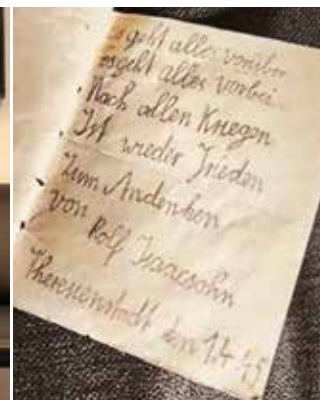 es geht alles vorüber
es geht alles vorbei
Nach allen Kriegen
Ist wieder Frieden
Zum Andenken
von
Rolf Isaacsohn
Theresienstadt den 1.4.45